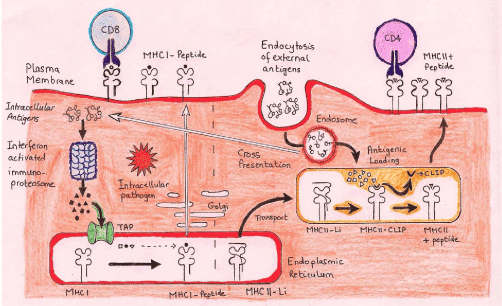 CD8
MHC I - Peptide
Endocytosis
of external
antigens
CD4
MHC II +
Peptide
Plasma
Membrane
Intracellular
Antigens
Endosome
Interferon
activated
immuno-
proteosome
Cross
Presentation
Antigenic
Loading
CLIP
Intracellular
pathogen
Golgi
MHC II - Li
MHC II - CLIP
MHC II
+ peptide
TAP
Transport
MHC I
MHC I - Peptide
MHC II - Li
Endoplasmic
Reticulum